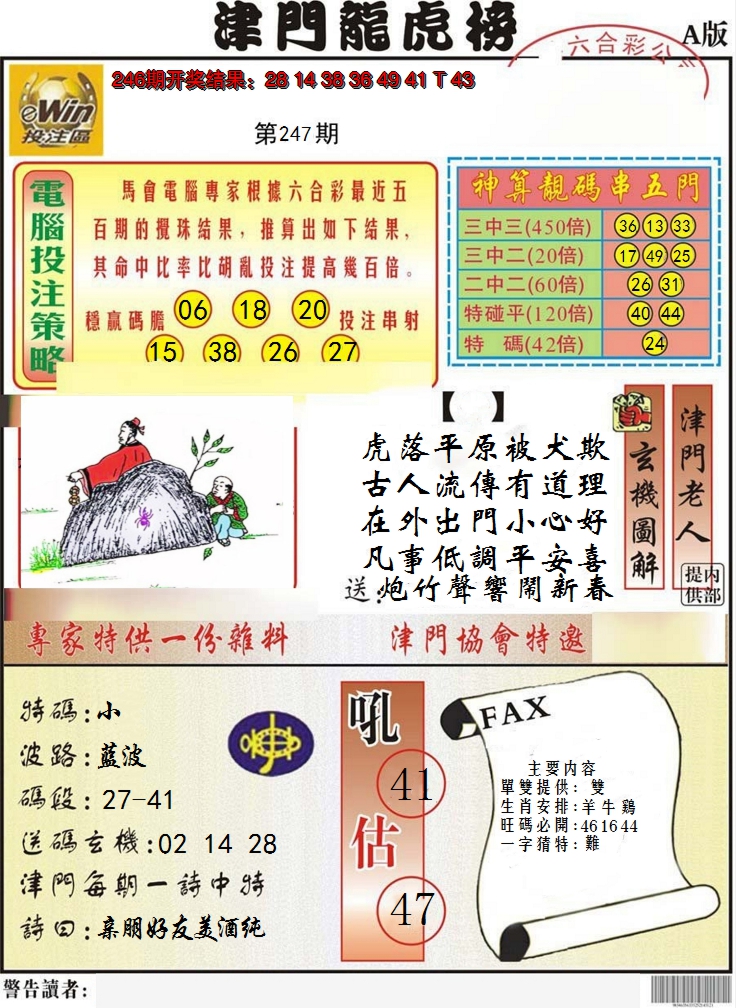 津門龍虎榜
A版
六合彩公
eWin
投注區
246期开奖结果: 28 14 38 36 49 41 T 43
第247期
電腦投注策略
馬會電腦專家根據六合彩最近五
百期的攪珠结果,推算出如下结果,
其命中比率比胡亂投注提高幾百倍。
穩贏碼膽 06 18 20 投注串射
15 38 26 27
神算靚碼串五門
三中三(450倍) 36 13 33
三中二(20倍) 17 49 25
二中二(60倍) 26 31
特碰平(120倍) 40 44
特 碼(42倍) 24
【 】
虎落平原被犬欺
古人流傳有道理
在外出門小心好
凡事低調平安喜
送:炮竹聲響鬧新春
玄機圖解
津門老人
内部提供
專家特供一份雜料
津門協會特邀
特碼:小
波路:藍波
碼段:27-41
送碼玄機:02 14 28
津門每期一詩中特
詩曰:亲朋好友美酒纯
吼
41
估
47
FAX
主要内容
單雙提供:雙
生肖安排:羊牛鷄
旺碼必開:46 16 44
一字猜特:難
警告讀者: